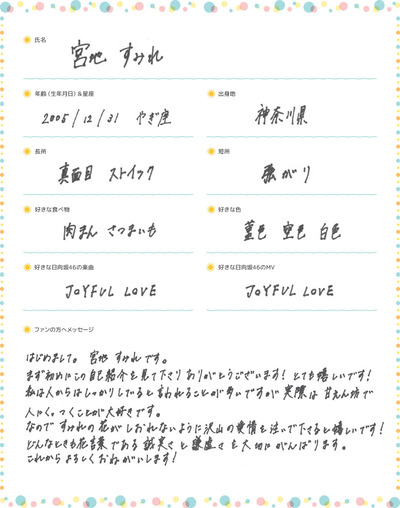 氏名
宮地 すみれ
年齢(生年月日)&星座
2005/12/31 やぎ座
出身地
神奈川県
長所
真面目 ストイック
短所
強がり
好きな食べ物
肉まん さつまいも
好きな色
藍色 空色 白色
好きな日向坂46の楽曲
JOYFUL LOVE
好きな日向坂46のMV
JOYFUL LOVE
ファンの方へメッセージ
はじめまして。 宮地 すみれです。
まず初めにこの自己紹介を見て下さりありがとうございます! とても嬉しいです!
私は人からはしっかりしていると言われることが多いですが実際は甘えん坊で
人にくっつくことが大好きです。
なので すみれの花がしおれないように沢山の愛情を注いで下さると嬉しいです!
どんなときも花言葉である誠実さと謙虚さを大切にがんばります。
これからよろしくおねがいします!